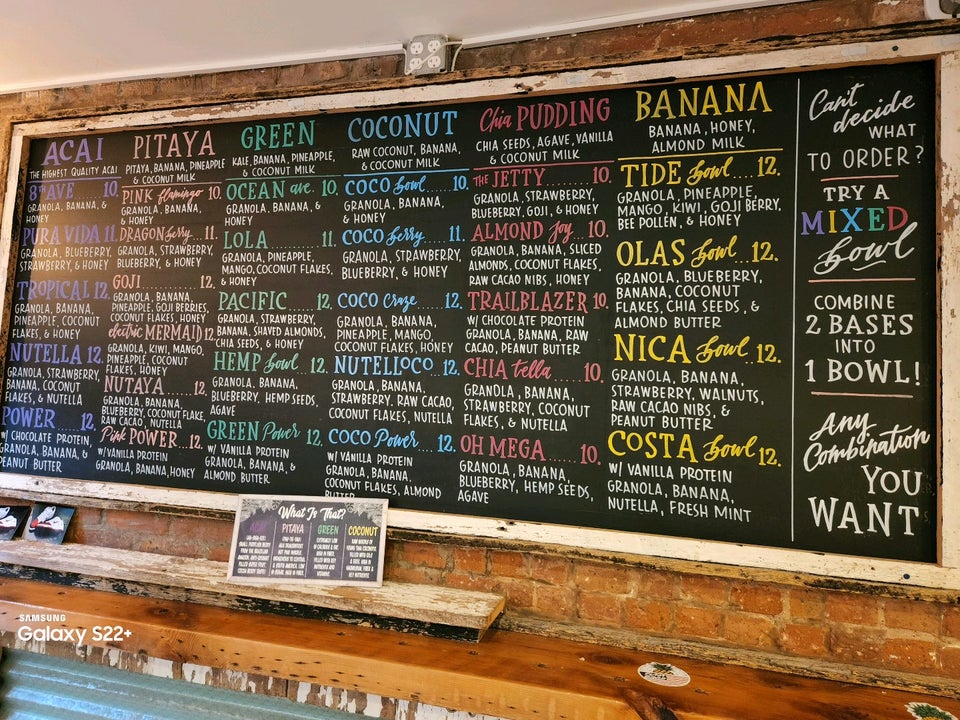 ACAI
THE HIGHEST QUALITY ACAI
8TH AVE 10.
GRANOLA, BANANA, &
HONEY
PURA VIDA 11.
GRANOLA, BLUEBERRY,
STRAWBERRY, & HONEY
TROPICAL 12.
GRANOLA, BANANA,
PINEAPPLE, COCONUT
FLAKES, & HONEY
NUTELLA 12.
GRANOLA, STRAWBERRY,
BANANA, COCONUT
FLAKES, & NUTELLA
POWER ..... 12.
W/ CHOCOLATE PROTEIN,
GRANOLA, BANANA, &
PEANUT BUTTER
PITAYA
PITAYA, BANANA, PINEAPPLE
& COCONUT MILK
PINK flamingo 10.
GRANOLA, BANANA,
& HONEY
DRAGON berry .. 11.
GRANOLA, STRAWBERRY,
BLUEBERRY, & HONEY
GOJI .......... 12.
GRANOLA, BANANA,
PINEAPPLE, GOJI BERRIES,
COCONUT FLAKES, & HONEY
electric MERMAID 12.
GRANOLA, KIWI, MANGO,
PINEAPPLE, COCONUT
FLAKES, & HONEY
NUTAYA ...... 12.
GRANOLA, BANANA,
BLUEBERRY, COCONUT FLAKE,
RAW CACAO, NUTELLA
Pink POWER .... 12.
W/VANILLA PROTEIN
GRANOLA, BANANA, HONEY
GREEN
KALE, BANANA, PINEAPPLE,
& COCONUT MILK
OCEAN ave. 10.
GRANOLA, BANANA, &
HONEY
LOLA .......... 11.
GRANOLA, PINEAPPLE,
MANGO, COCONUT FLAKES,
& HONEY
PACIFIC ...... 12.
GRANOLA, STRAWBERRY,
BANANA, SHAVED ALMONDS,
CHIA SEEDS, & HONEY
HEMP bowl .. 12.
GRANOLA, BLUEBERRY, BANANA,
BLUEBERRY, HEMP SEEDS,
AGAVE
GREEN Power 12.
W/ VANILLA PROTEIN
GRANOLA, BANANA, &
ALMOND BUTTER
COCONUT
RAW COCONUT, BANANA,
& COCONUT MILK
COCO bowl ..... 10.
GRANOLA, BANANA,
& HONEY
COCO berry .... 11.
GRANOLA, STRAWBERRY,
BLUEBERRY, & HONEY
COCO craze .... 12.
GRANOLA, BANANA,
PINEAPPLE, MANGO,
COCONUT FLAKES, & HONEY
NUTELLOCO .. 12.
GRANOLA, BANANA,
STRAWBERRY, RAW CACAO,
COCONUT FLAKES, NUTELLA
COCO Power ... 12.
W/ VANILLA PROTEIN
GRANOLA, BANANA,
COCONUT FLAKES, ALMOND
BUTTER
Chia PUDDING
CHIA SEEDS, AGAVE, VANILLA
& COCONUT MILK
THE JETTY ....... 10.
GRANOLA, STRAWBERRY,
BLUEBERRY, GOJI, & HONEY
ALMOND Joy .... 10.
GRANOLA, BANANA, SLICED
ALMONDS, COCONUT FLAKES,
RAW CACAO NIBS, HONEY
TRAILBLAZER 10.
W/ CHOCOLATE PROTEIN
GRANOLA, BANANA, RAW
CACAO, PEANUT BUTTER
CHIA tella ...... 10.
GRANOLA, BANANA,
STRAWBERRY, COCONUT
FLAKES, & NUTELLA
OH MEGA ..... 10.
GRANOLA, BANANA,
BLUEBERRY, HEMP SEEDS,
AGAVE
BANANA
BANANA, HONEY,
ALMOND MILK
TIDE bowl ..... 12.
GRANOLA, PINEAPPLE,
MANGO, KIWI, GOJI BERRY,
BEE POLLEN, & HONEY
OLAS bowl ... 12.
GRANOLA, BLUEBERRY,
BANANA, COCONUT
FLAKES, CHIA SEEDS, &
ALMOND BUTTER
NICA bowl ... 12.
GRANOLA, BANANA,
STRAWBERRY, WALNUTS,
RAW CACAO NIBS, &
PEANUT BUTTER
COSTA bowl 12.
W/ VANILLA PROTEIN
GRANOLA, BANANA,
NUTELLA, FRESH MINT
Can't
decide
WHAT
TO ORDER?
TRY A
MIXED
bowl
COMBINE
2 BASES
INTO
1 BOWL!
Any
Combination
YOU
WANT
What Is That?
ACAI
PITAYA
GREEN
COCONUT
SAMSUNG
Galaxy S22+